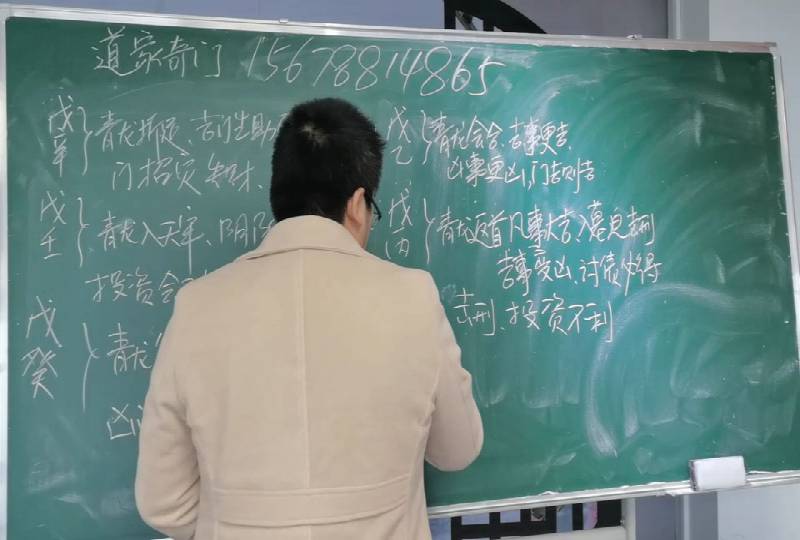 道家奇门 15678814865
戊
辛
青龙折足、吉门生助
门招灾 失财、
戊
壬
青龙入天牢、阴阳
投资会
戊
癸
青龙
凶
戊
乙
青龙会合、吉事更吉、
凶事更凶,门吉则吉
戊
丙
青龙返首凡事大吉、入墓见击刑
吉事变凶、讨债必得
击刑、投资不利